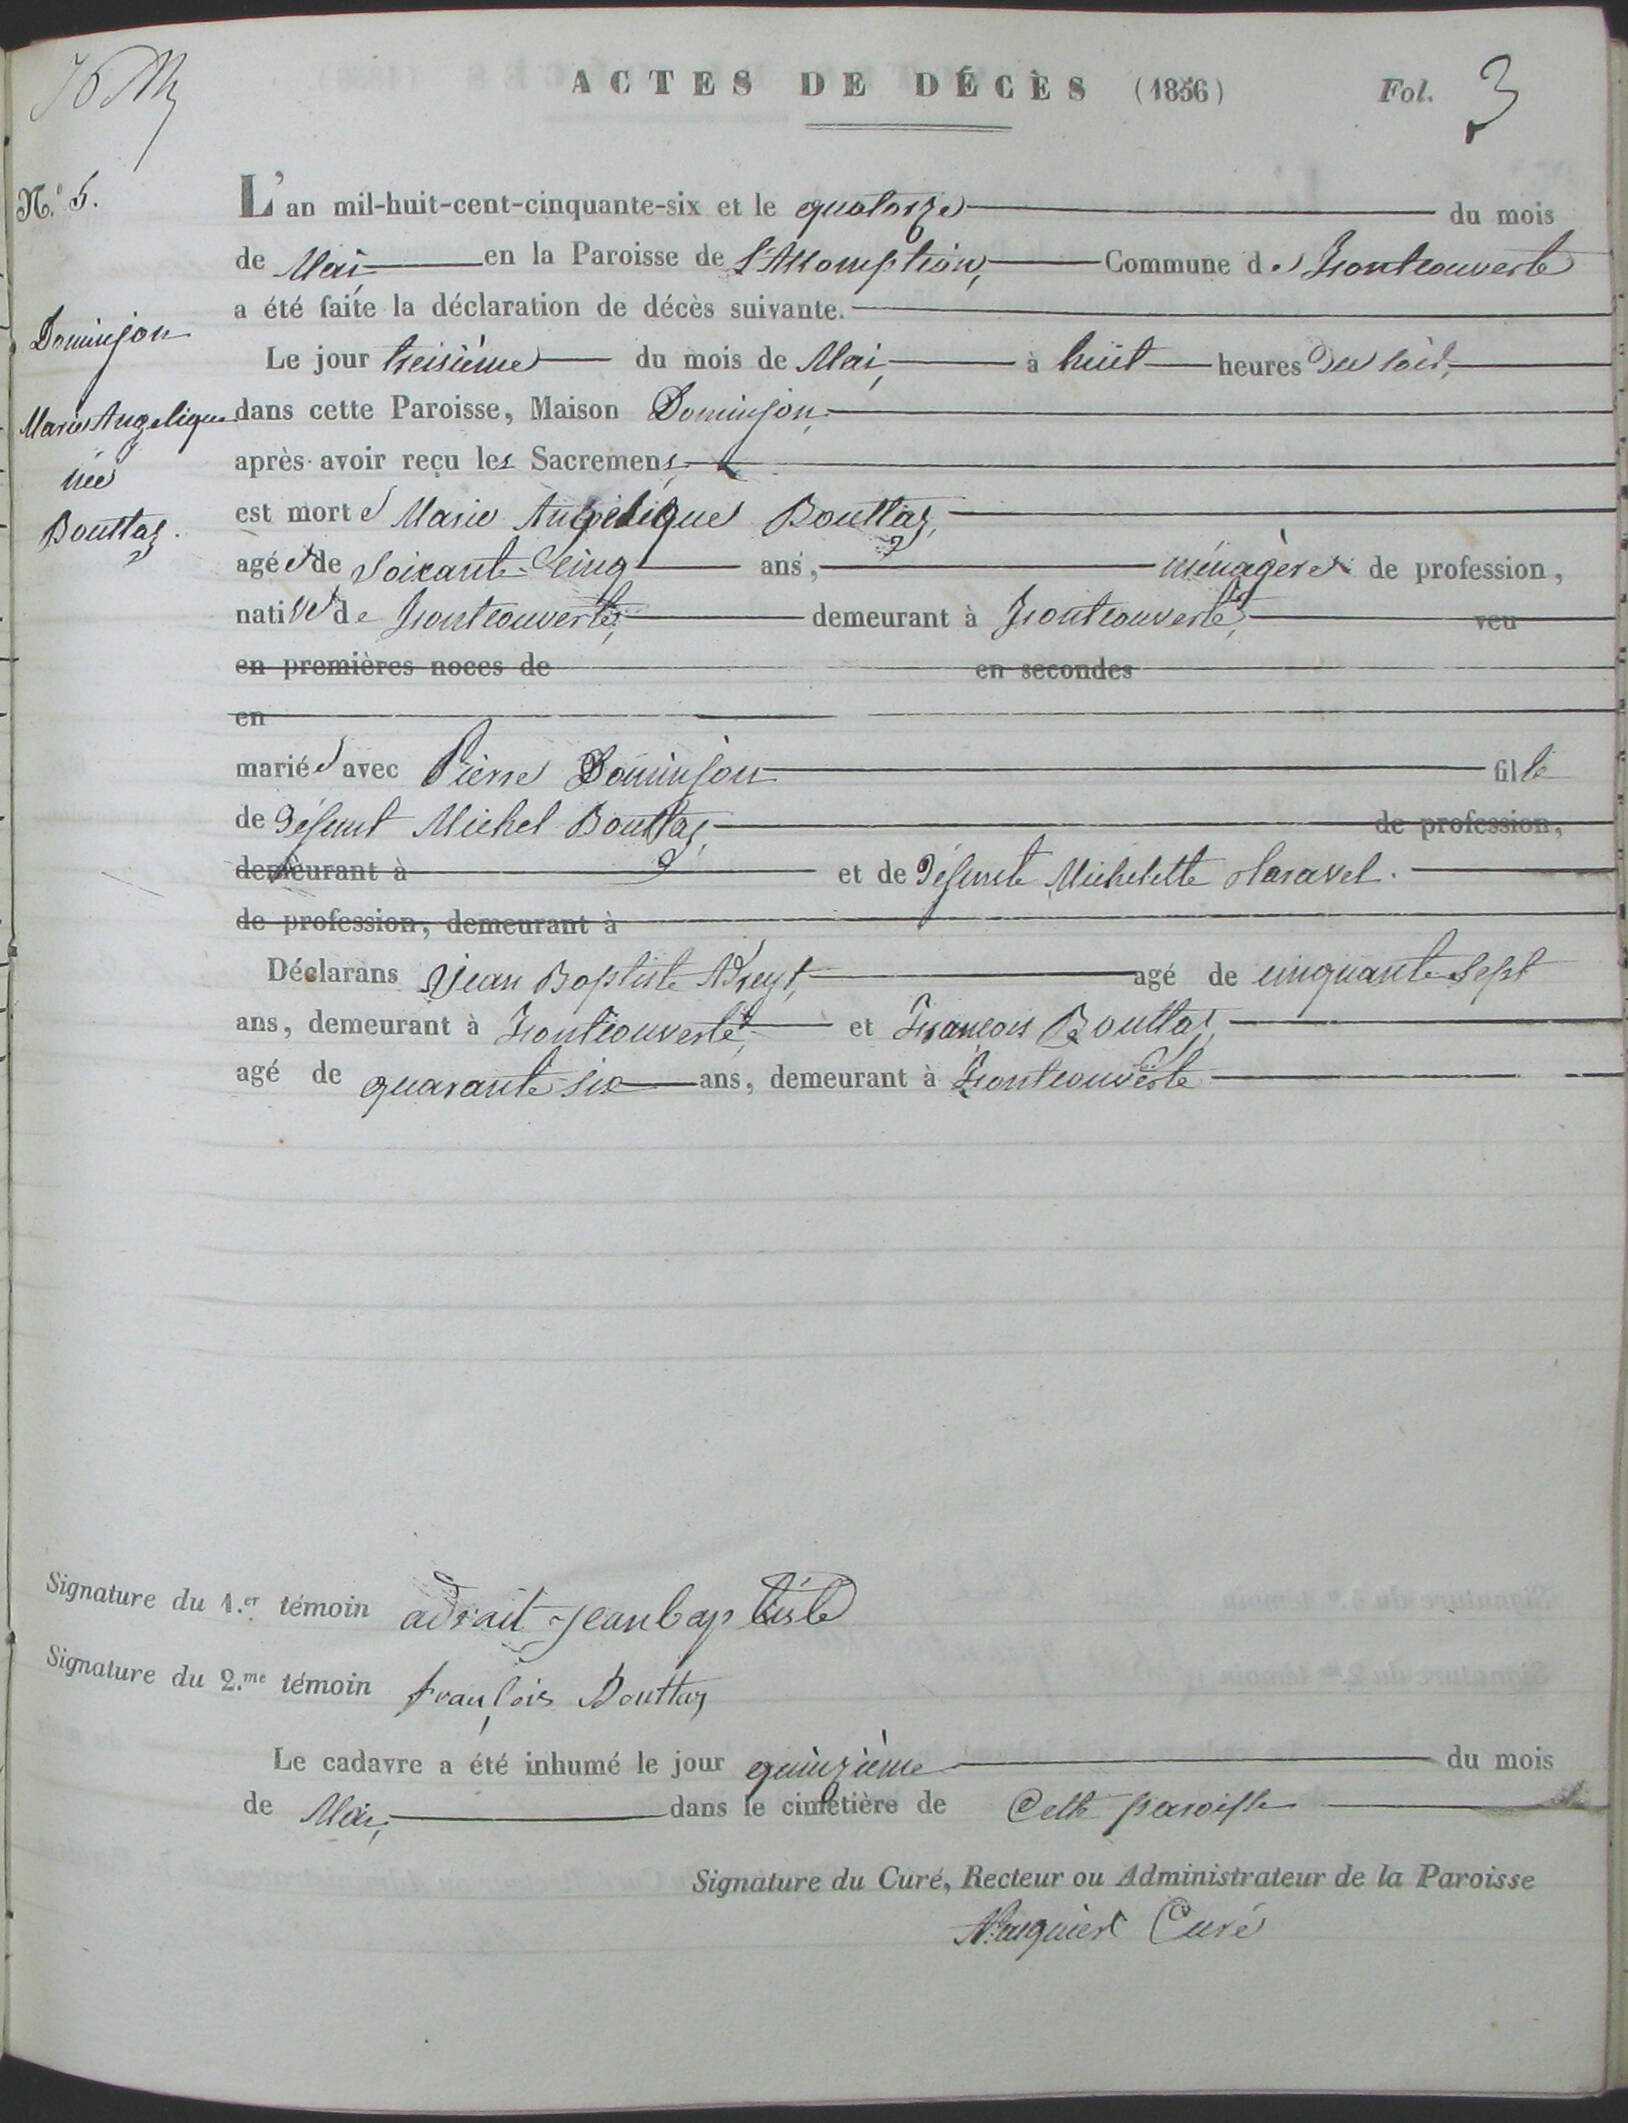 ACTES DE DÉCÈS (1856) Fol. 3
N.° 5.
L'an mil-huit-cent-cinquante-six et le quatorze du mois
de Mai en la Paroisse de l'Assomption, Commune de Fontcouverte
a été faite la déclaration de décès suivante.
Dominjon
Le jour treisième du mois de Mai, à huit heures du soir,
Marie Angelique
dans cette Paroisse, Maison Dominjon,
après avoir reçu les Sacremens,
née
est morte Marie Angélique Bouttaz,
Bouttaz.
agée de soixante-cinq ans, ménagère de profession,
native de Fontcouverte, demeurant à Fontcouverte, veu
en premières noces de en secondes
en
mariée avec Pierre Dominjon fille
de défunt Michel Bouttaz, de profession,
demeurant à et de défunte Michelette Claravel.
de profession, demeurant à
Déclarans Jean Baptiste Adreyt, agé de cinquante sept
ans, demeurant à Fontcouverte, et François Bouttaz,
agé de quarante six ans, demeurant à Fontcouverte
Signature du 1.er témoin adrait jean baptiste
Signature du 2.me témoin françois Bouttaz
Le cadavre a été inhumé le jour quinzième du mois
de Mai, dans le cimetière de Cette paroisse
Signature du Curé, Recteur ou Administrateur de la Paroisse
Curé